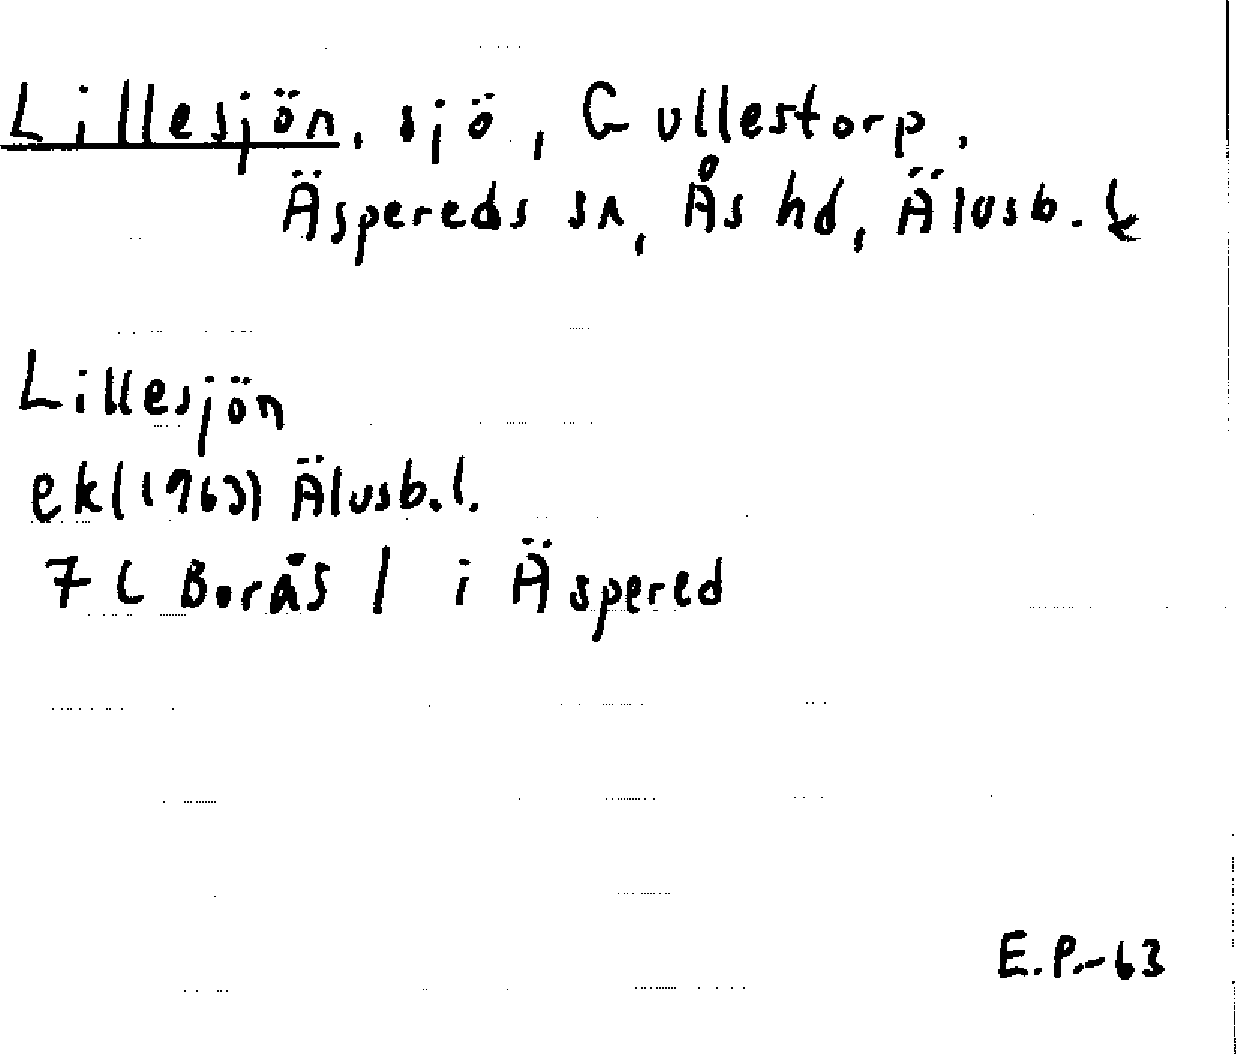 Lillesjön, sjö, Gullestorp,
Äspereds sn, Ås hd, Älvsb. l
Lillesjön
ek(1963) Älvsb.l.
7C Borås / i Äspered
E.P.-63